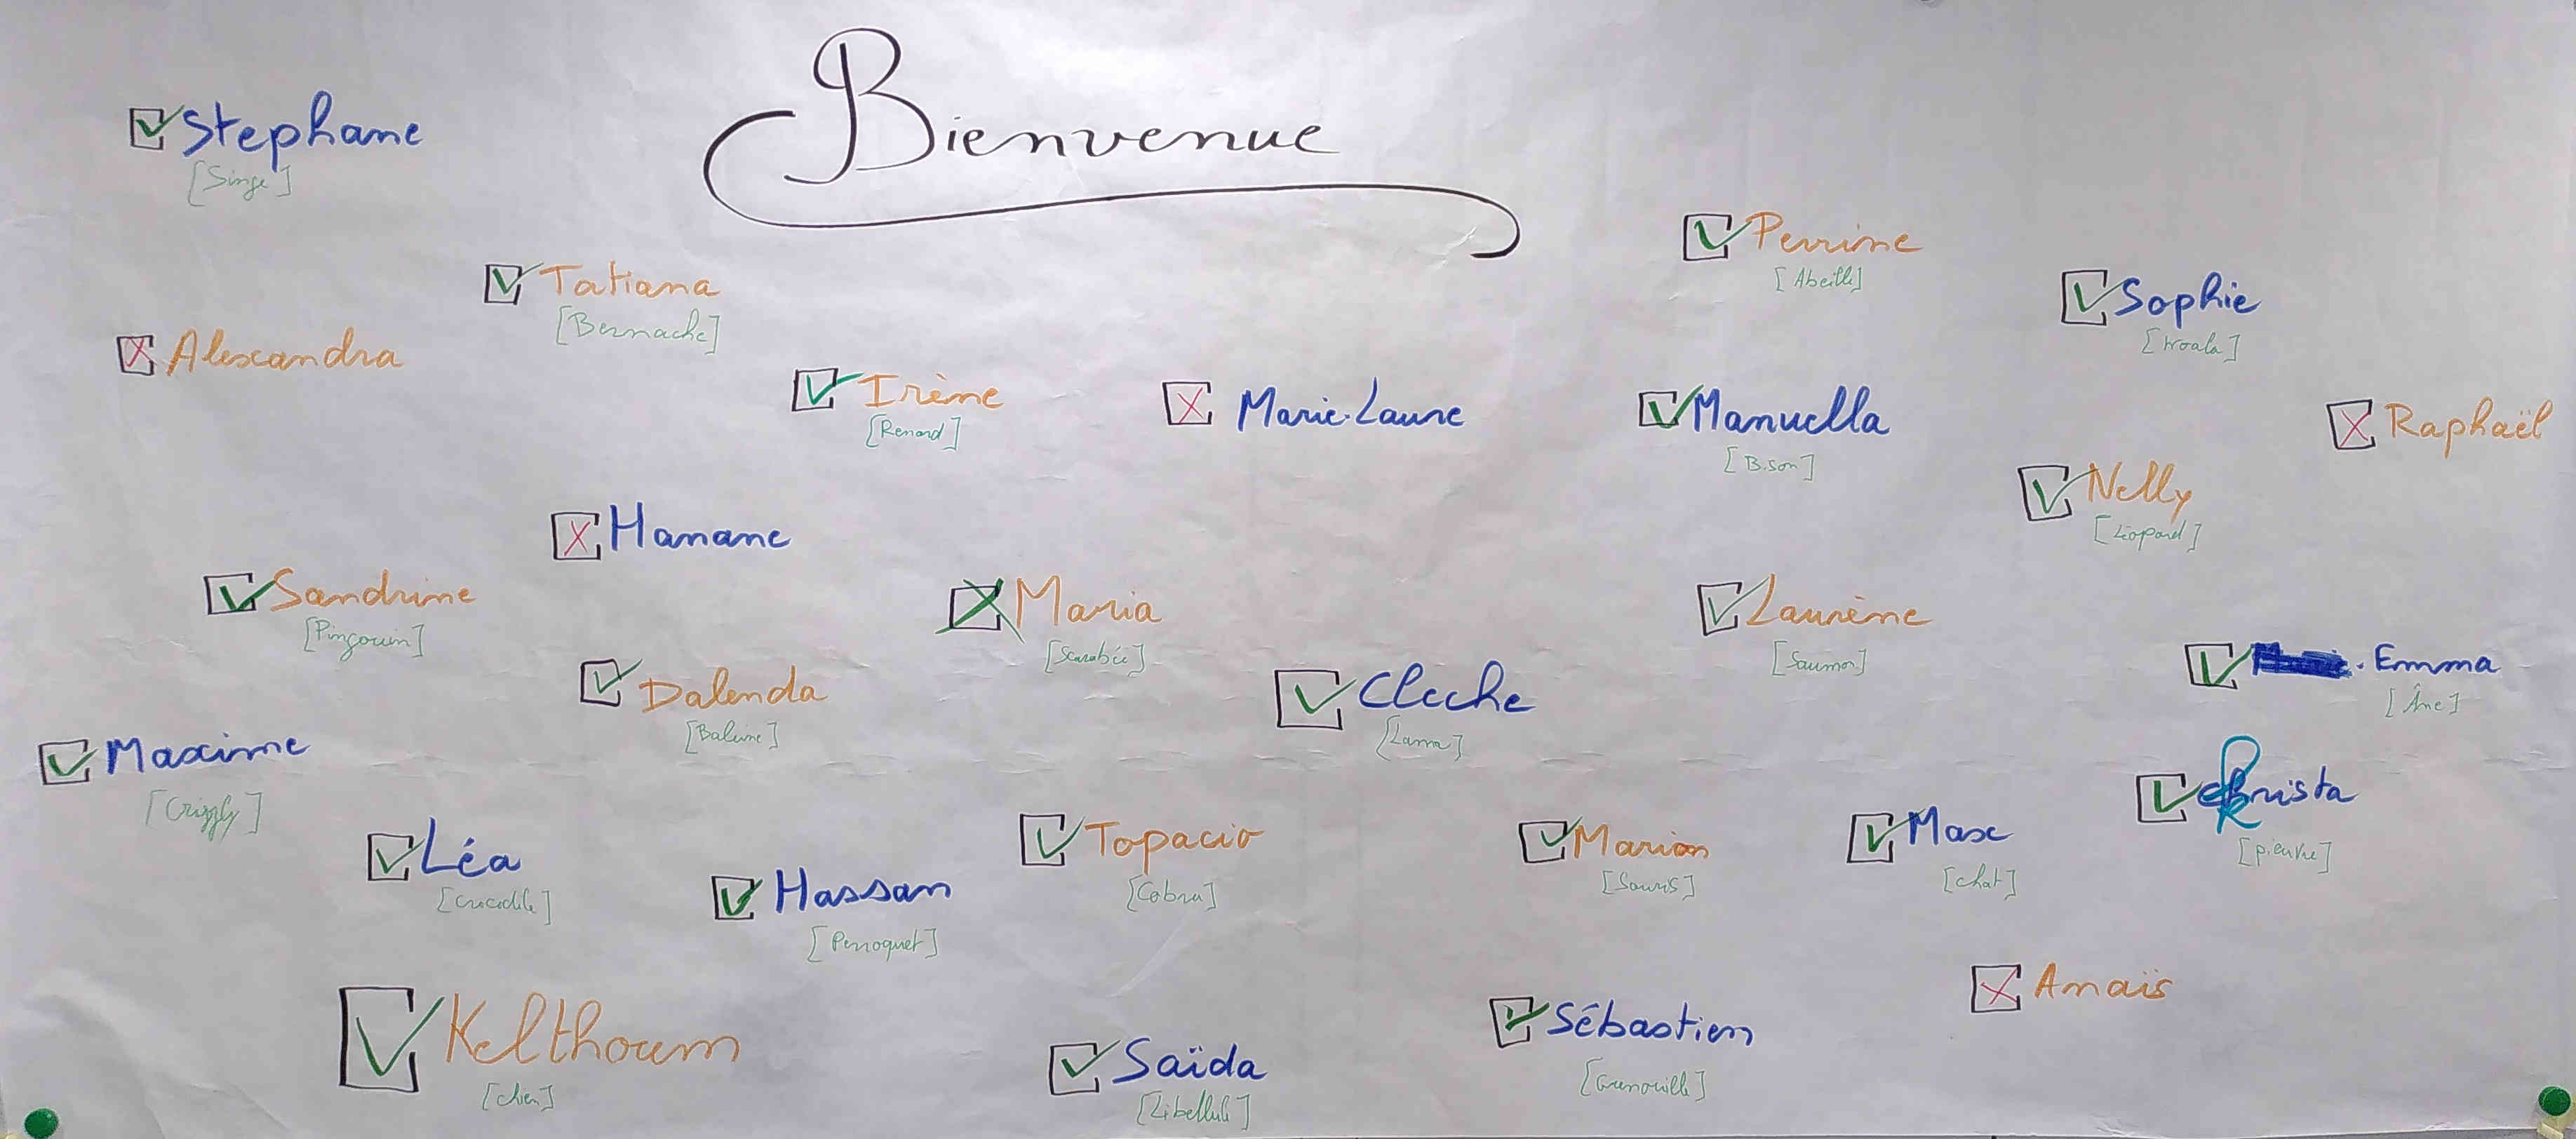 Bienvenue
Stephane
[Singe]
Perrine
[Abeille]
Tatiana
[Bernache]
Sophie
[Koala]
Alexandra
Irène
[Renard]
Marie-Laure
Manuella
[Bison]
Raphaël
Nelly
[Léopard]
Hanane
Sandrine
[Pingouin]
Maria
[Scarabée]
Laurène
[Saumon]
Emma
[Âne]
Dalenda
[Baleine]
Cleche
[Lama]
Maxime
[Grizzly]
Krista
[pieuvre]
Léa
[crocodile]
Hassan
[Perroquet]
Topacio
[Cobra]
Marion
[Souris]
Max
[chat]
Anaïs
Kelthoum
[chien]
Saïda
[Libellule]
Sébastien
[Grenouille]